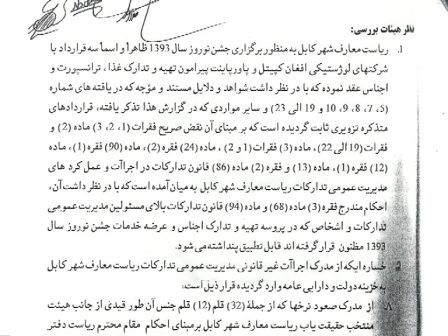 نظر هیئات بررسی:
1. ریاست معارف شهر کابل به منظور برگزاری جشن نوروز سال 1393 ظاهراً و اسماً سه قرارداد با
شرکتهای لوژستیکی افغان کپیتل و پاورپاینت پیرامون تهیه و تدارک غذا، ترانسپورت و
اجناس عقد نموده که با در نظر داشت شواهد و دلایل مستند و مؤجه که در یافته های شماره
(5، 7، 8، 9، 10 و 19 الی 23) و سایر مواردی که در گزارش هذا تذکر یافته، قراردادهای
متذکره تزویری ثابت گردیده است که بر مبنای آن نقض صریح فقرات (1، 2، 3) ماده (2) و
فقرات (19 الی 22)، ماده (3) فقرات (1 و 2)، ماده (24) فقره (2)، ماده (90) فقره (1)،
(12) فقره (1)، ماده (13) و فقره (2) ماده (86) قانون تدارکات در اجراآت و عمل کرد های
مدیریت عمومی تدارکات ریاست معارف شهر کابل به میان آمده است که با در نظر داشت آن،
احکام مندرج فقره (3) ماده (68) و ماده (94) قانون تدارکات بالای مسئولین مدیریت عمومی
تدارکات و اشخاص که در پروسه تهیه و تدارک اجناس و عرضه خدمات جشن نوروز سال
1393 مظنون قرار گرفته اند قابل تطبیق پنداشته می شود.
خساره ایکه از مدرک اجراآت غیر قانونی مدیریت عمومی تدارکات ریاست معارف شهر کابل
به خزینه دولت و دارایی عامه وارد گردیده قرار ذیل است:
از مدرک صعود نرخها که از جملهٔ (32) قلم (12) قلم جنس آن طور قیدی از جانب هیئت
منتخب حقیقت یاب ریاست معارف شهر کابل بر مبنای احکام مقام محترم ریاست دفتر